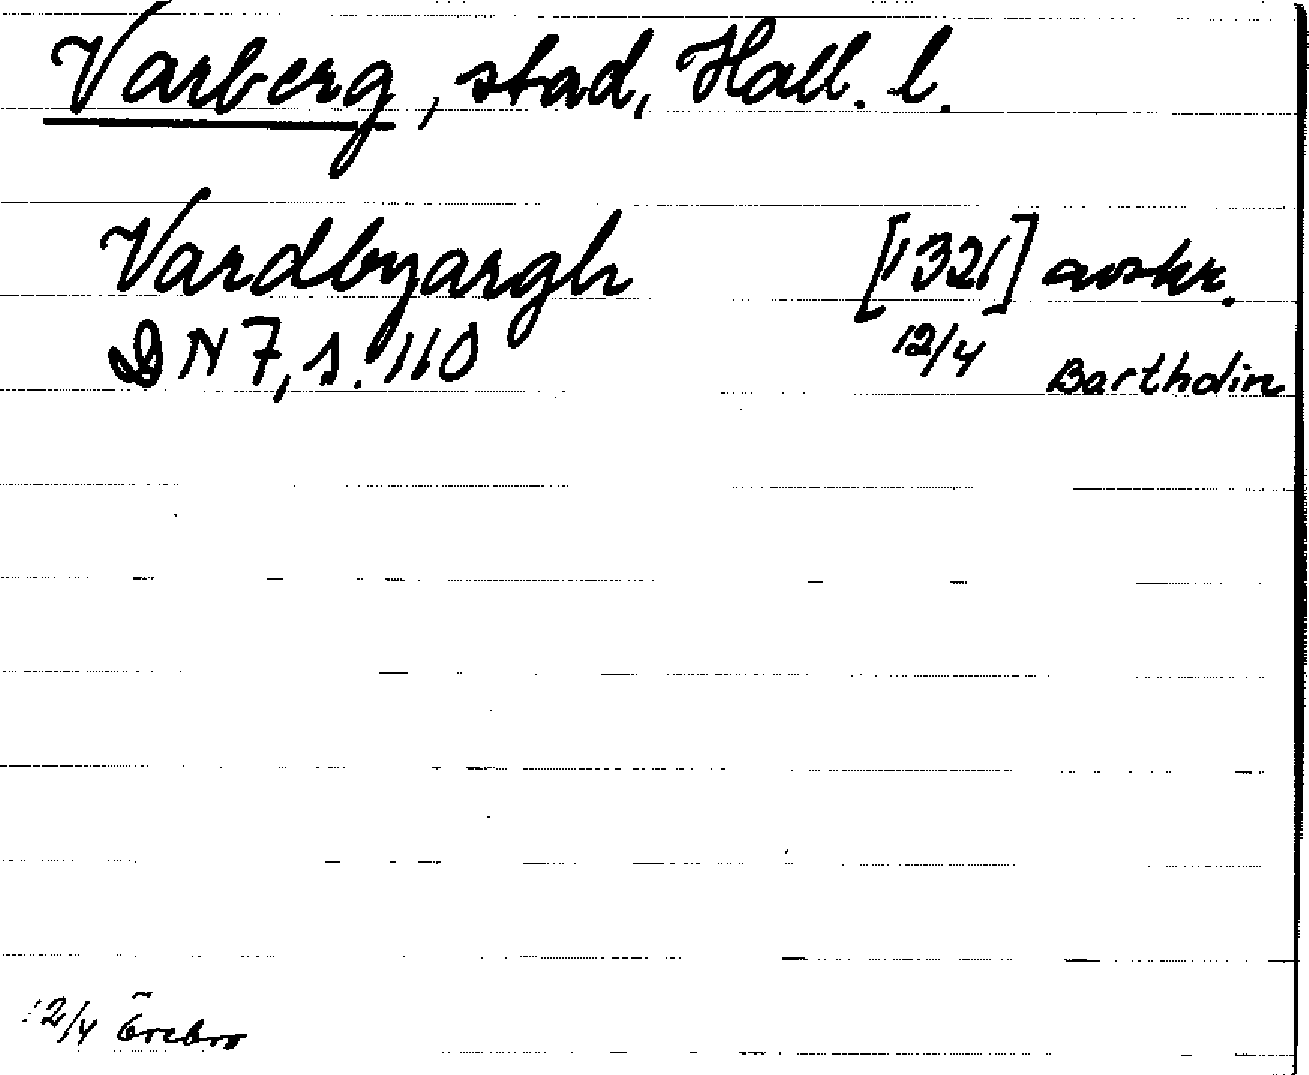 Varberg, stad, Hall. l.
Vardbyargh [1321] avskr.
DN 7, s. 110 12/4 Bartholin
12/4 Örebro